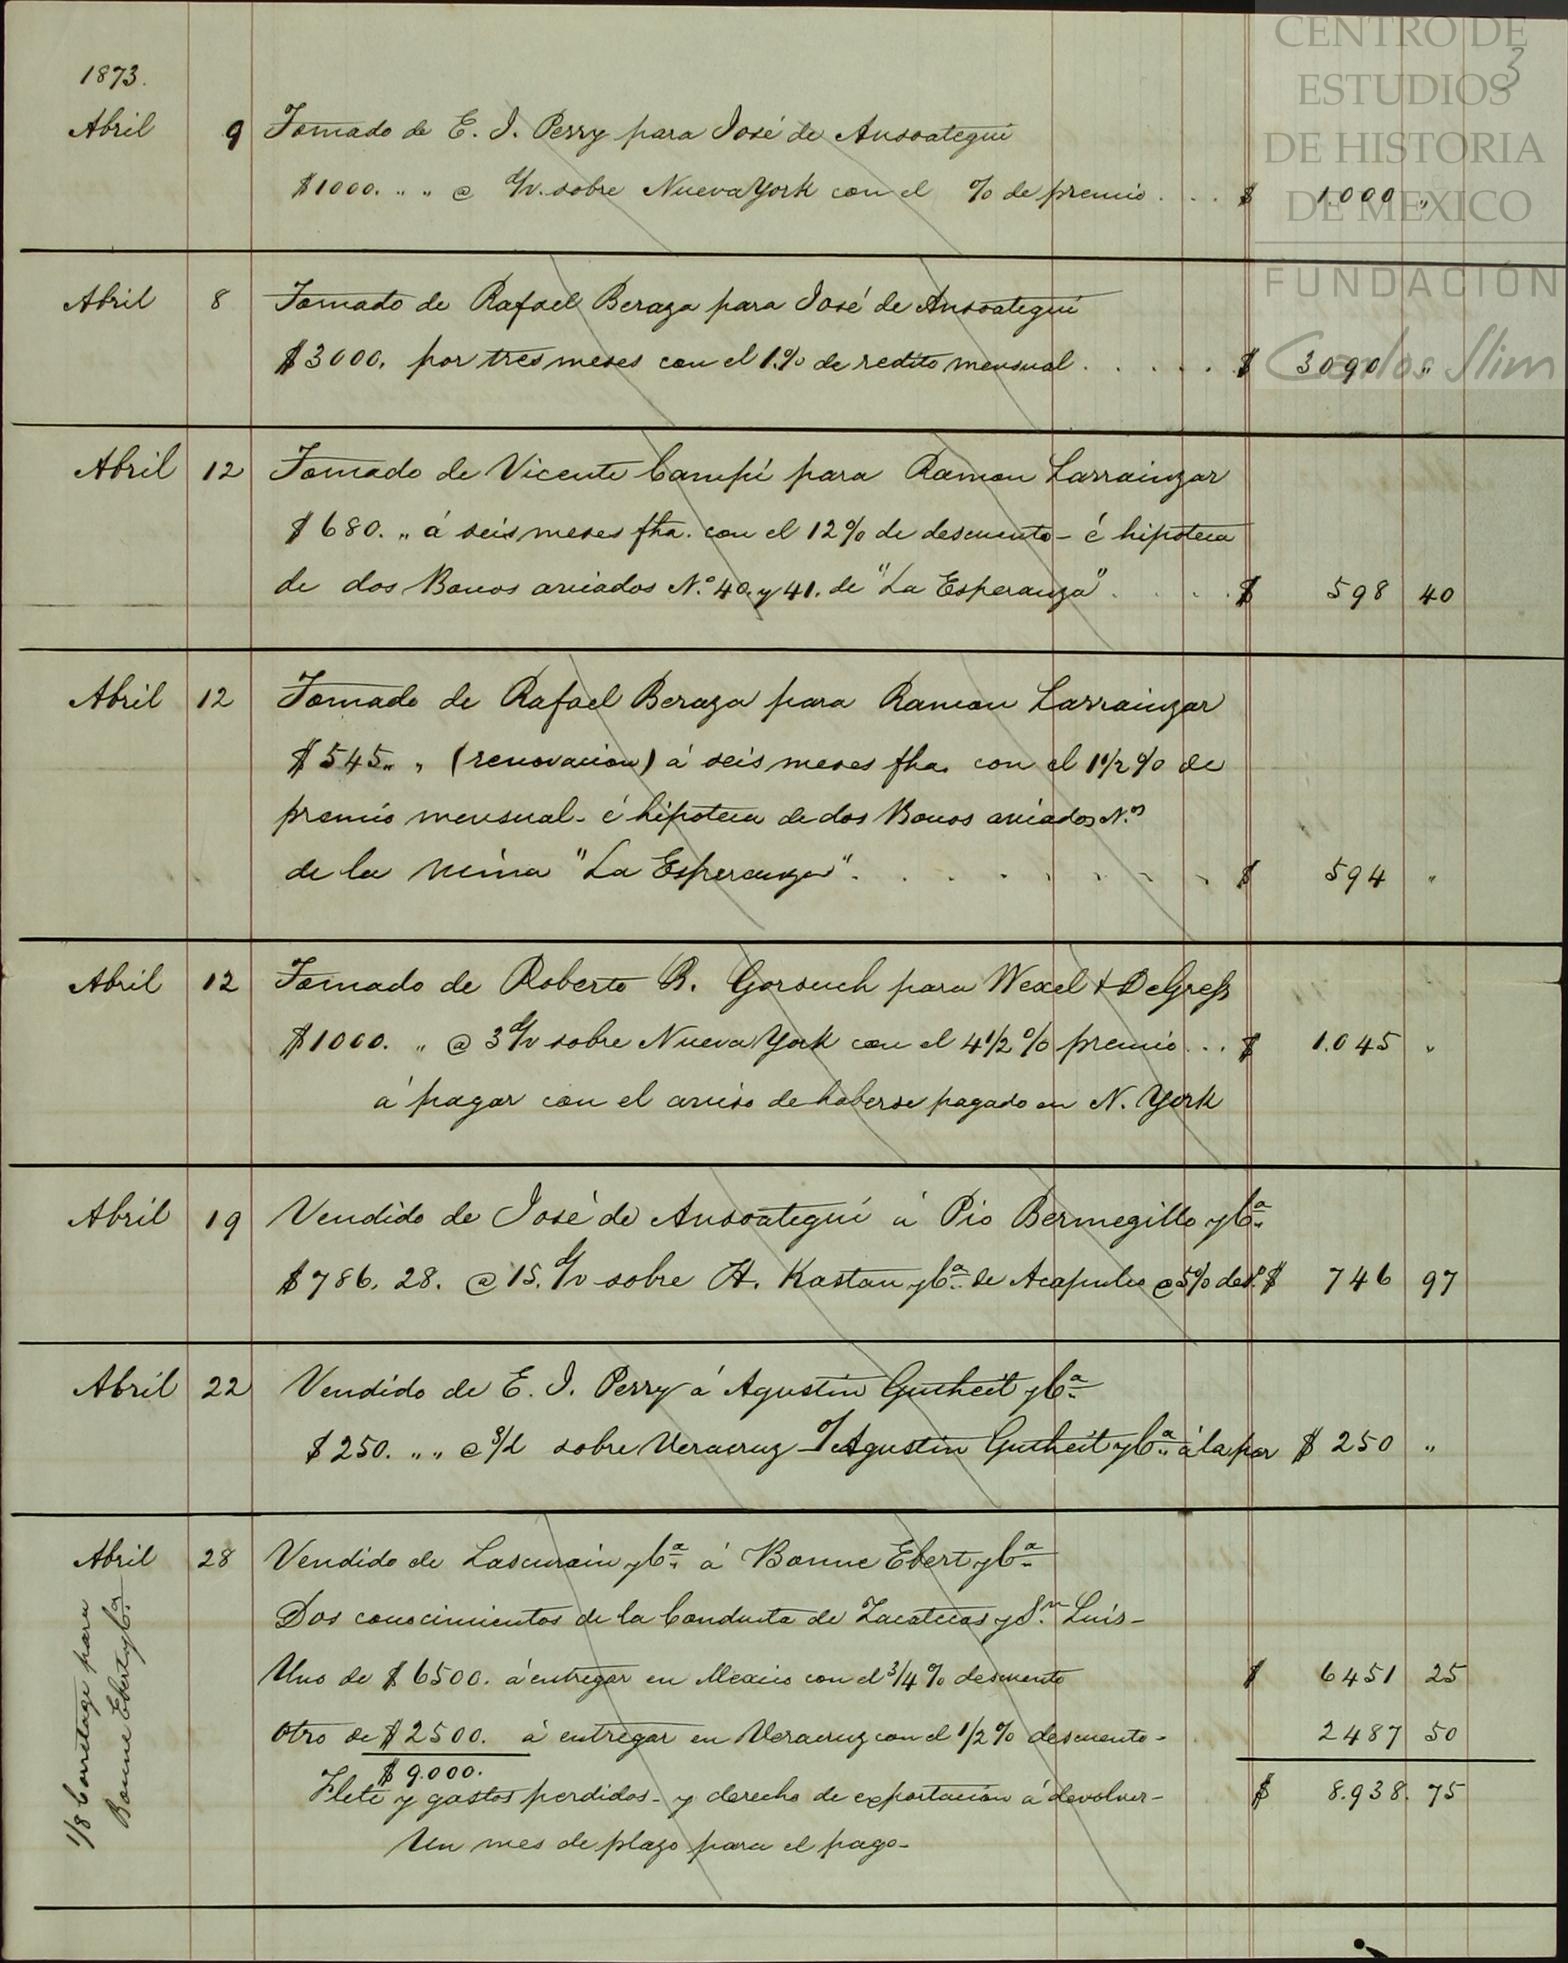 CENTRO DE
ESTUDIOS
DE HISTORIA
DE MEXICO
FUNDACIÓN
Carlos Slim
3
1873.
Abril 9 Tomado de E. J. Perry para José de Ansoategui
$1000. „ „ @ d/v. sobre Nueva York con el % de premio . . . $ 1.000 „
Abril 8 Tomado de Rafael Beraza para José de Ansoategui
$3000, por tres meses con el 1.% de redito mensual . . . . . . $ 3090 „
Abril 12 Tomado de Vicente Campí para Ramon Larrainzar
$680. „ á seis meses fha. con el 12% de descuento - é hipoteca
de dos Bonos aviados N.º 40. y 41. de "La Esperanza" . . . . $ 598 40
Abril 12 Tomado de Rafael Beraza para Ramon Larrainzar
$545. „ „ (renovacion) á seis meses fha. con el 1 1/2 % de
premio mensual - é hipoteca de dos Bonos aviados N.os
de la mina "La Esperanza" . . . . . . . . $ 594 „
Abril 12 Tomado de Roberto R. Gorsuch para Wexel & DeGress
$1000. „ @ 3 d/v sobre Nueva York con el 4 1/2 % premio . . . $ 1.045 „
á pagar con el aviso de haberse pagado en N. York
Abril 19 Vendido de José de Ansoategui á Pio Bermegillo y Ca.
$786, 28. @ 15. d/v sobre H. Kastan y Ca. de Acapulco @ 5% des. $ 746 97
Abril 22 Vendido de E. J. Perry á Agustin Gutheit y Ca.
$250. „ „ @ sobre Veracruz Agustin Gutheit y Ca. á la par $ 250 „
Abril 28 Vendido de Lascurain y Ca. á Bonne Ebert y Ca.
Dos conocimientos de la Conducta de Zacatecas y Sn. Luis -
Uno de $6500. á entregar en Mexico con el 3/4 % descuento $ 6451 25
Otro de $2500. á entregar en Veracruz con el 1/2 % descuento - 2487 50
$9.000.
Flete y gastos perdidos - y derecho de exportacion á devolver - $ 8.938. 75
Un mes de plazo para el pago -
1/8 Corretage para
Bonne Ebert y Ca.